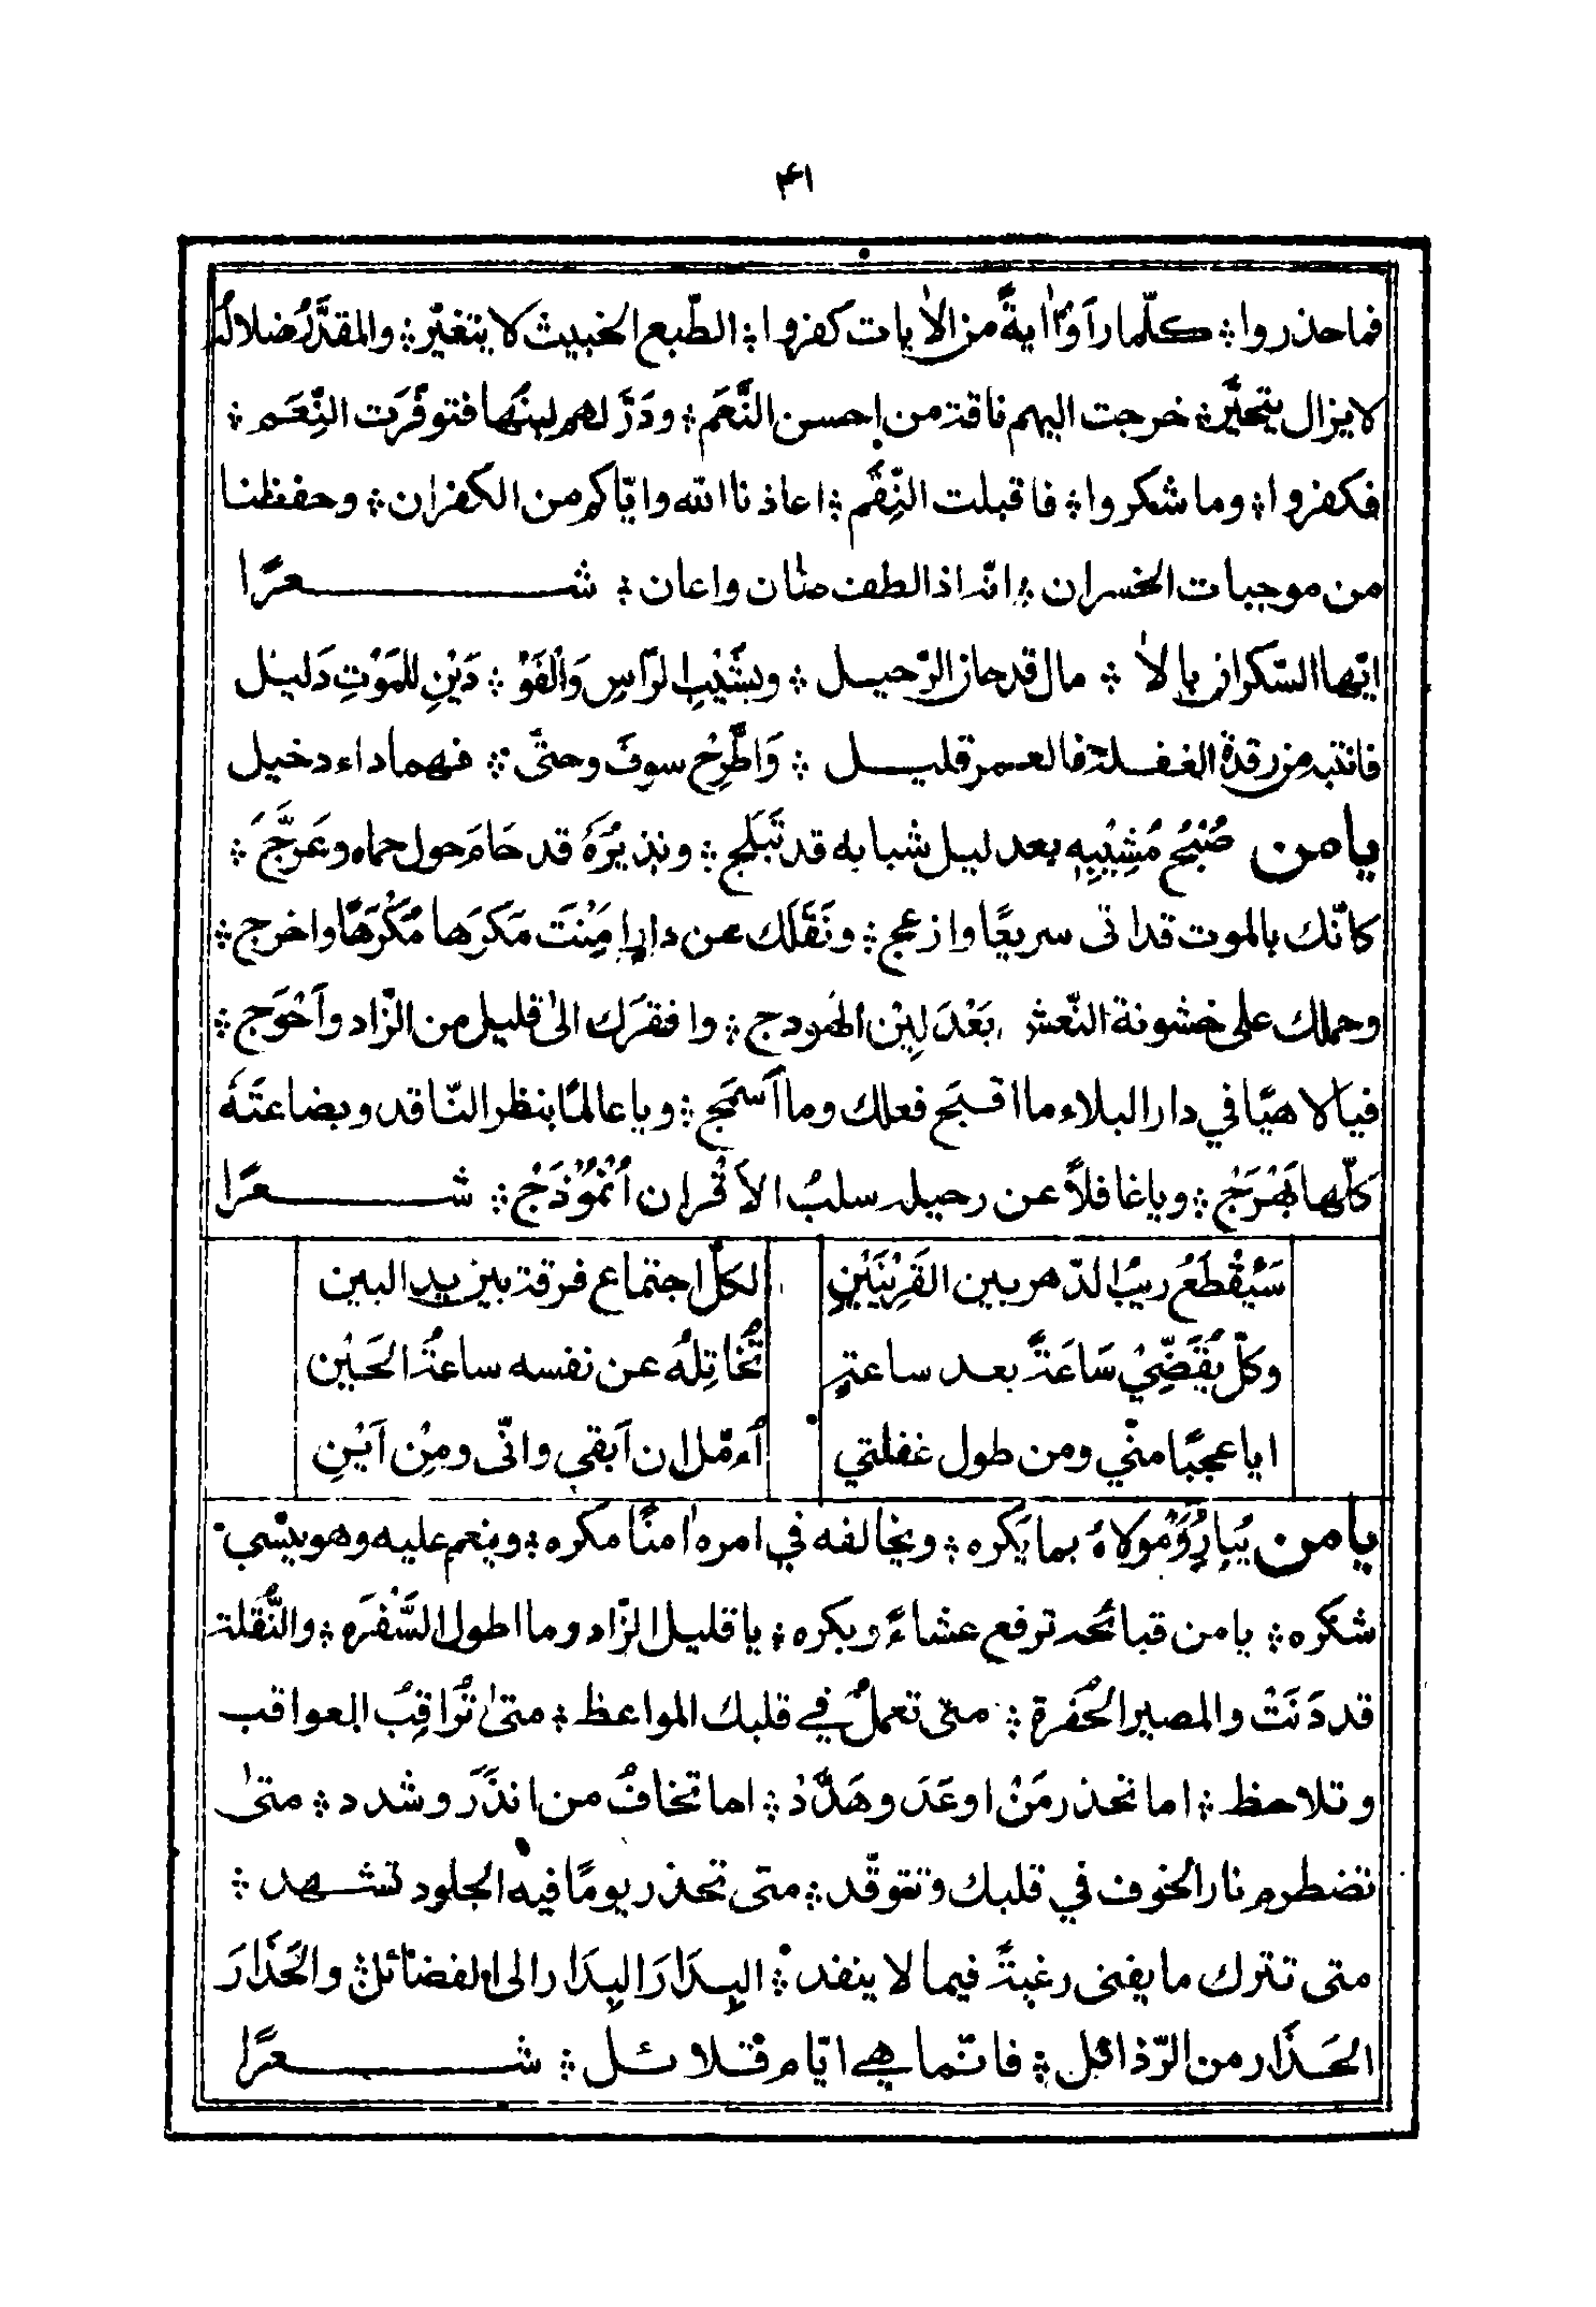 ۴۱
فما حذروا ؞ كلّما رأوا اٰيةً من الاٰيات كفروا ؞ الطّبع الخبيث لا يتغيّر ؞ والمقدَّرُ ضلالُه
لا يزال يتحيّر ؞ خرجت اليهم ناقة من احسن النَّعَم ؞ ودَرَّ لهم لبنُها فتوفّرَت النِّعَم ؞
فكفروا ؞ وما شكروا ؞ فاقبلت النِّقَم ؞ اعاذنا الله وايّاكم من الكفران ؞ وحفظنا
من موجبات الخسران ؞ انّه اذا لطف صان واعان ؞ شعرًا
ايّها السّكران بالاٰ ؞ مال قد حان الرّحيل ؞ وبشَيْبِ الرّاسِ وَالْفَوْ ؞ دَيْنِ للمَوْتِ دَليل
فانتبه من رقدة الغفلة فالعمر قليل ؞ وَاطَّرِحْ سوفَ وحتّى ؞ فهما داء دخيل
يا من صُبْحُ مَشِيْبِهٖ بعد ليل شبابه قد تَبَلَّج ؞ ونذيرُهٗ قد حَامَ حول حماه وعَرَّجَ ؞
كانّك بالموت قد اتى سريعًا وازعج ؞ ونَقَلَك عن دارٍ اَمِنْتَ مَكرَها مُكْرَهًا واخرج ؞
وحملك على خشونة النّعش بَعْدَ لِيْن الهَودج ؞ وافقرَك الىٰ قليل من الزّاد واَحْوَج ؞
فيا لاهيًا في دار البلاء ما اقبَح فعلك وما اَسمَج ؞ ويا عالمًا بنظر النّاقد وبضاعتُهٗ
كلّها بَهْرَجْ ؞ ويا غافلاً عن رحيله سلبُ الاَقْران اُنْمُوْذَجْ ؞ شعرًا
سَيُقْطَعُ ريبُ الدّهر بين القَرِيْنَيْنِ لكلّ اجتماع فرقة بين يد البين
وكلّ يُقَضِّيْ سَاعَةً بعد ساعةٍ تُخَاتِلُه عن نفسه ساعةُ الحَيْن
ايا عجبًا منّي ومن طول غفلتي اَءُمّل ان اَبقي وانّى ومِنْ اَيْنِ
يا من يُبارِزُ مَولاهُ بما يَكره ؞ ويخالفه في امره اٰمنًا مكره ؞ وينعم عليه وهو ينسي
شكره ؞ يا من قبائحه ترفع عشاءً وبكره ؞ يا قليل الزّاد وما اطول السَّفرَه ؞ والنُّقلة
قد دَنَتْ والمصير الحُفرة ؞ متى تعملُ في قلبك المواعظ ؞ متىٰ تُرَاقِبُ العواقب
وتلاحظ ؞ اما تحذر مَنْ اوعَدَ وهَدَّدْ ؞ اما تخافُ من انذَرَ وشدد ؞ متىٰ
تضطرم نار الخوف في قلبك وتتوقّد ؞ متى تحذر يومًا فيه الجلود تشهد ؞
متى تترك ما يفنى رغبةً فيما لا ينفد ؞ البِدَارَ البِدَار الى الفضائل ؞ والحَذَارَ
الحَذَار من الرّذائل ؞ فانّما هي ايّام قلائل ؞ شعرًا